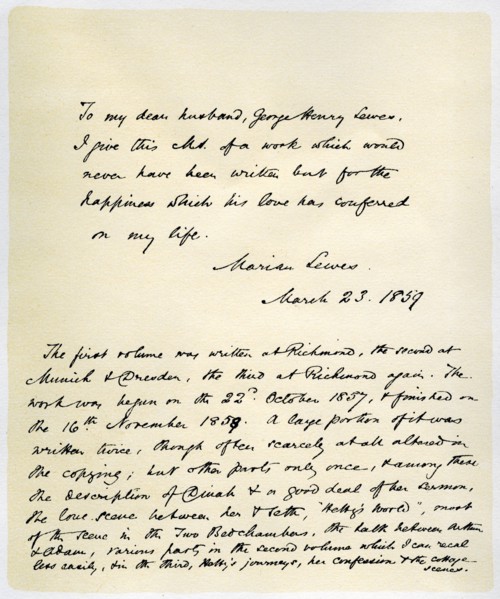 To my dear husband, George Henry Lewes,
I give this M.S. of a work which would
never have been written but for the
happiness which his love has conferred
on my life.
Marian Lewes.
March 23. 1859
The first volume was written at Richmond, the second at
Munich & Dresden, the third at Richmond again. The
work was begun on the 22d. October 1857, & finished on
the 16th November 1858. A large portion of it was
written twice, though often scarcely at all altered in
the copying; but other parts only once, & among these
the description of Dinah & a good deal of her sermon,
the love-scene between her & Seth, "Hetty's World", most
of the scene in the Two Bedchambers, the talk between Arthur
& Adam, various parts in the second volume which I can recal
less easily, & in the third, Hetty's journeys, her confession & the cottage
scenes.